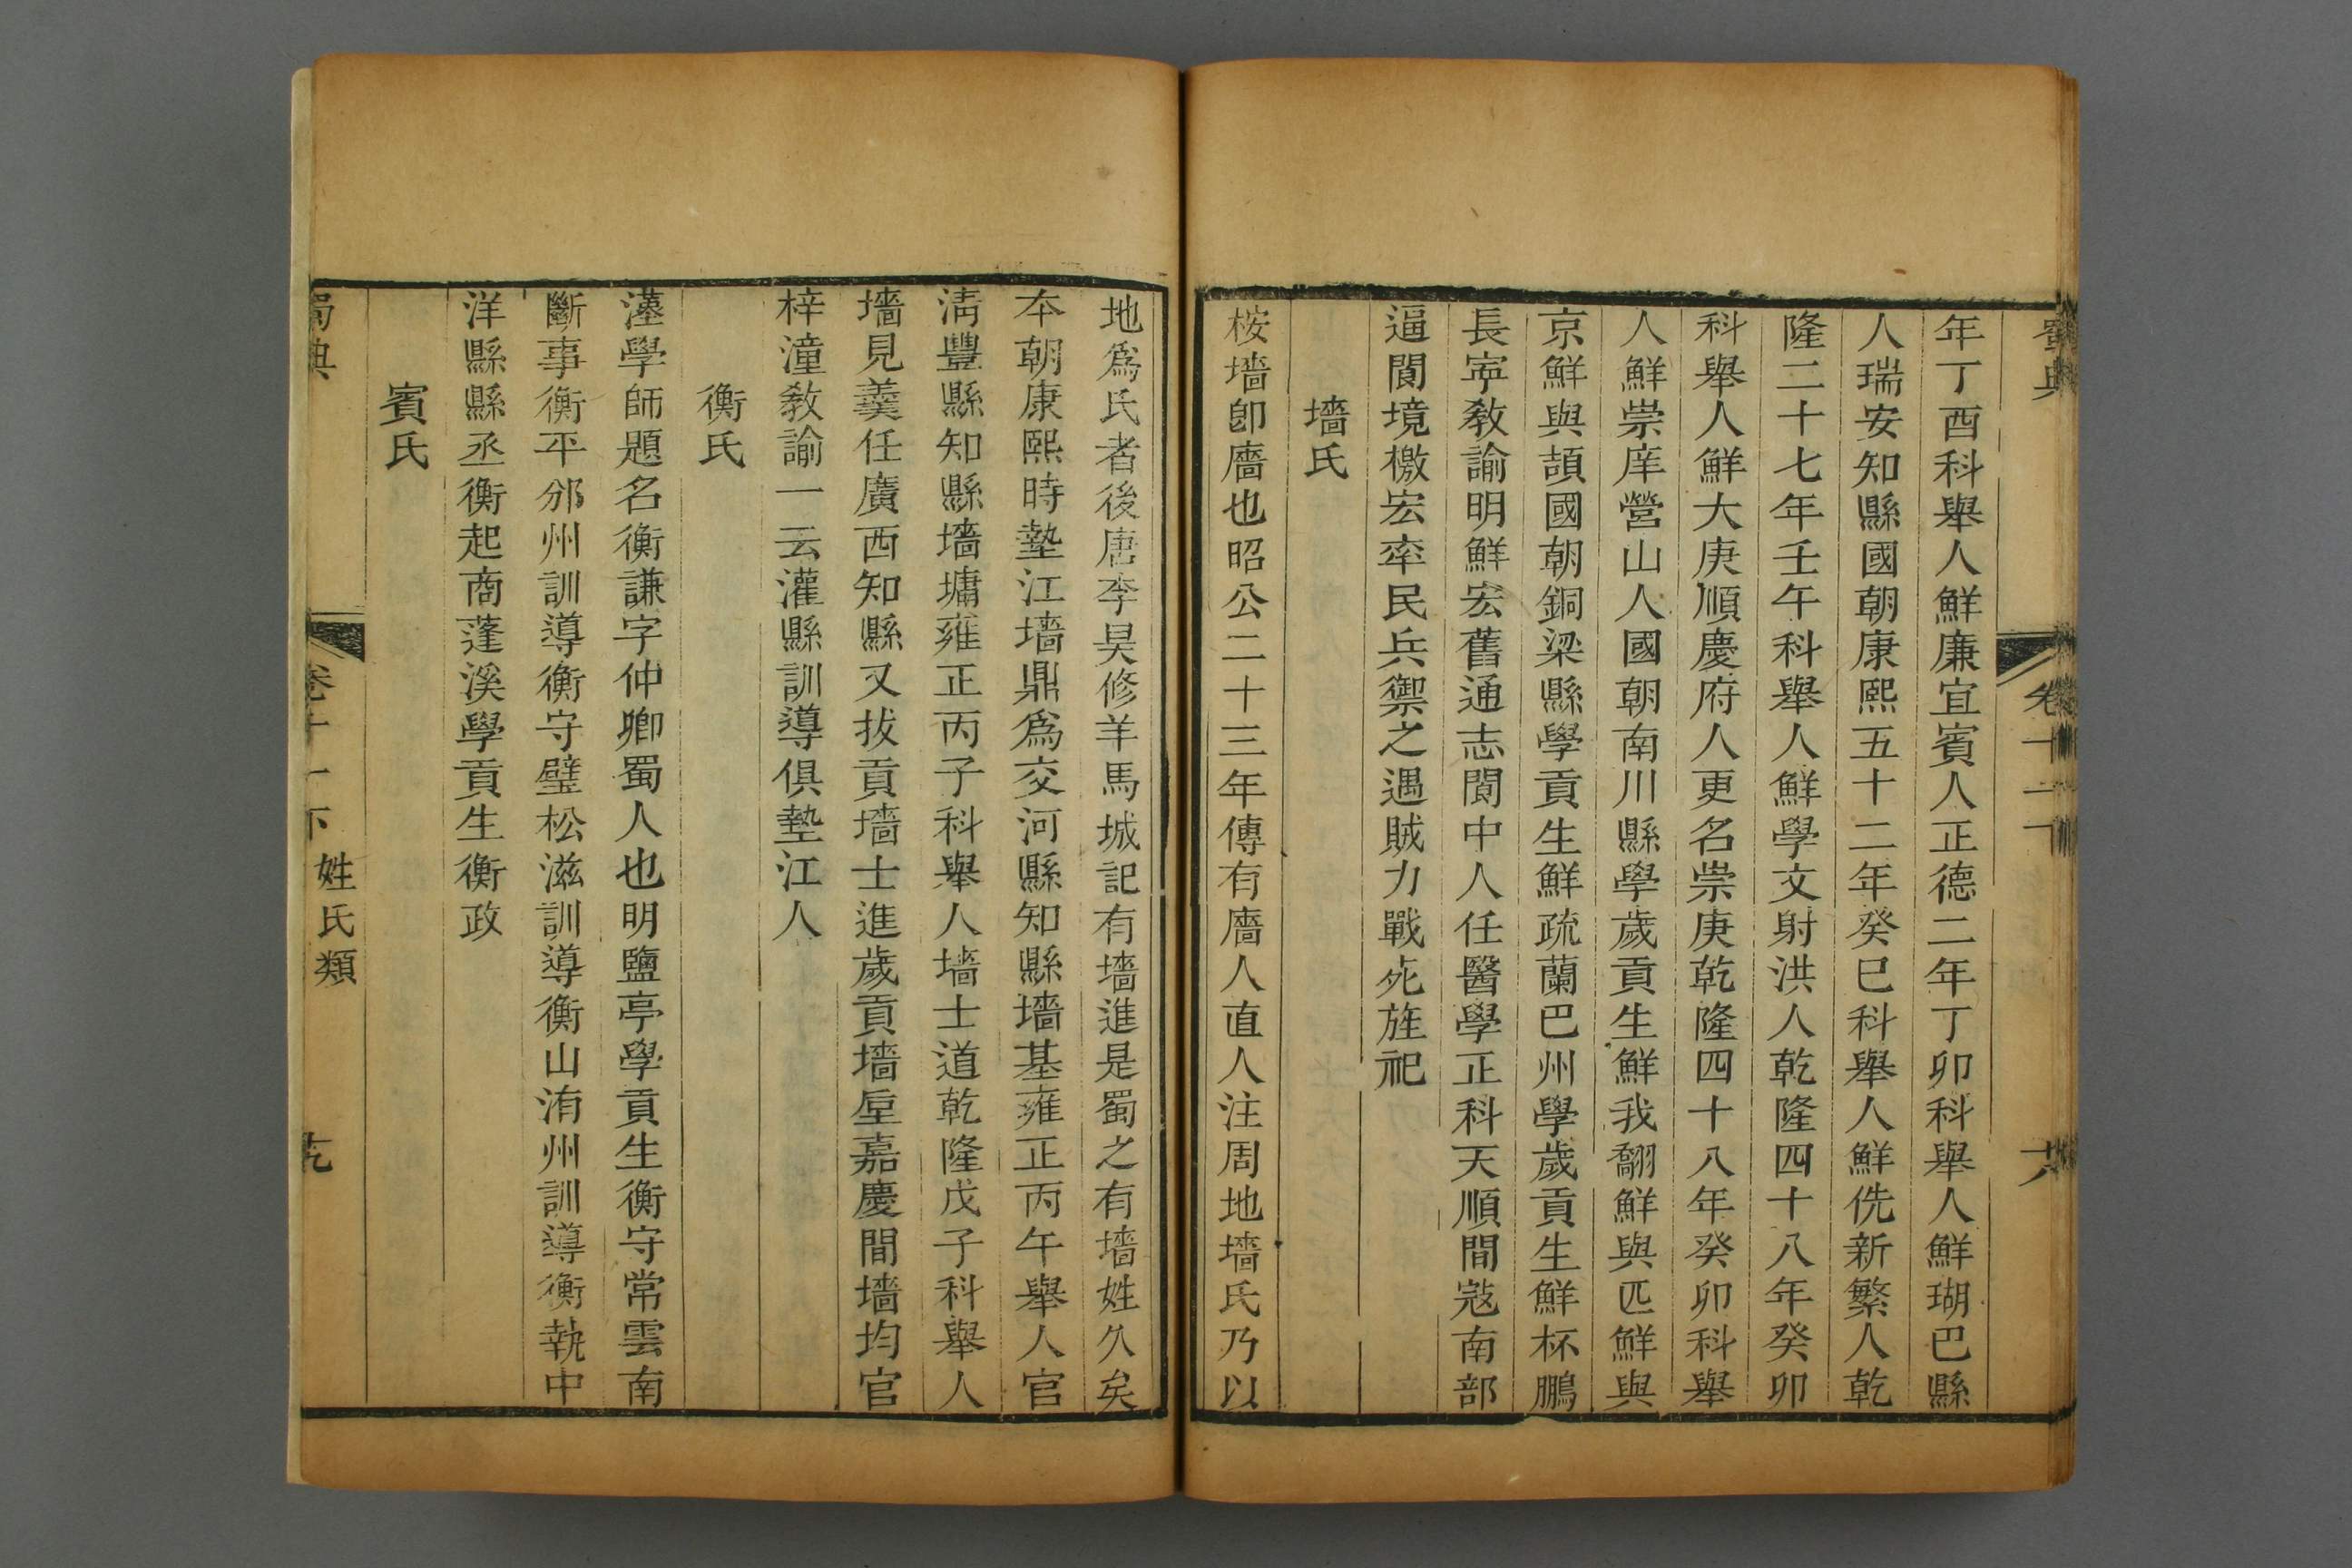 蜀典
卷十一下
六
年丁酉科舉人鮮廉宜賓人正德二年丁卯科舉人鮮瑚巴縣
人瑞安知縣國朝康熙五十二年癸巳科舉人鮮侁新繁人乾
隆二十七年壬午科舉人鮮學文射洪人乾隆四十八年癸卯
科舉人鮮大庚順慶府人更名崇庚乾隆四十八年癸卯科舉
人鮮崇庠營山人國朝南川縣學歲貢生鮮我翿鮮與匹鮮與
京鮮與頡國朝銅梁縣學貢生鮮疏蘭巴州學歲貢生鮮杯鵬
長寕教諭明鮮宏舊通志閬中人任醫學正科天順間寇南部
逼閬境檄宏率民兵禦之遇賊力戰死旌祀
墻氏
桉墻卽廧也昭公二十三年傳有廧人直人注周地墻氏乃以
地爲氏者後唐李昊修羊馬城記有墻進是蜀之有墻姓久矣
本朝康熙時墊江墻鼎爲交河縣知縣墻基雍正丙午舉人官
淸豐縣知縣墻墉雍正丙子科舉人墻士道乾隆戊子科舉人
墻見羹任廣西知縣又拔貢墻士進歲貢墻垕嘉慶間墻均官
梓潼敎諭一云灌縣訓導俱墊江人
衡氏
漢學師題名衡謙字仲卿蜀人也明鹽亭學貢生衡守常雲南
斷事衡平邠州訓導衡守璧松滋訓導衡山洧州訓導衡執中
洋縣縣丞衡起商蓬溪學貢生衡政
賓氏
蜀典
卷十一下
姓氏類